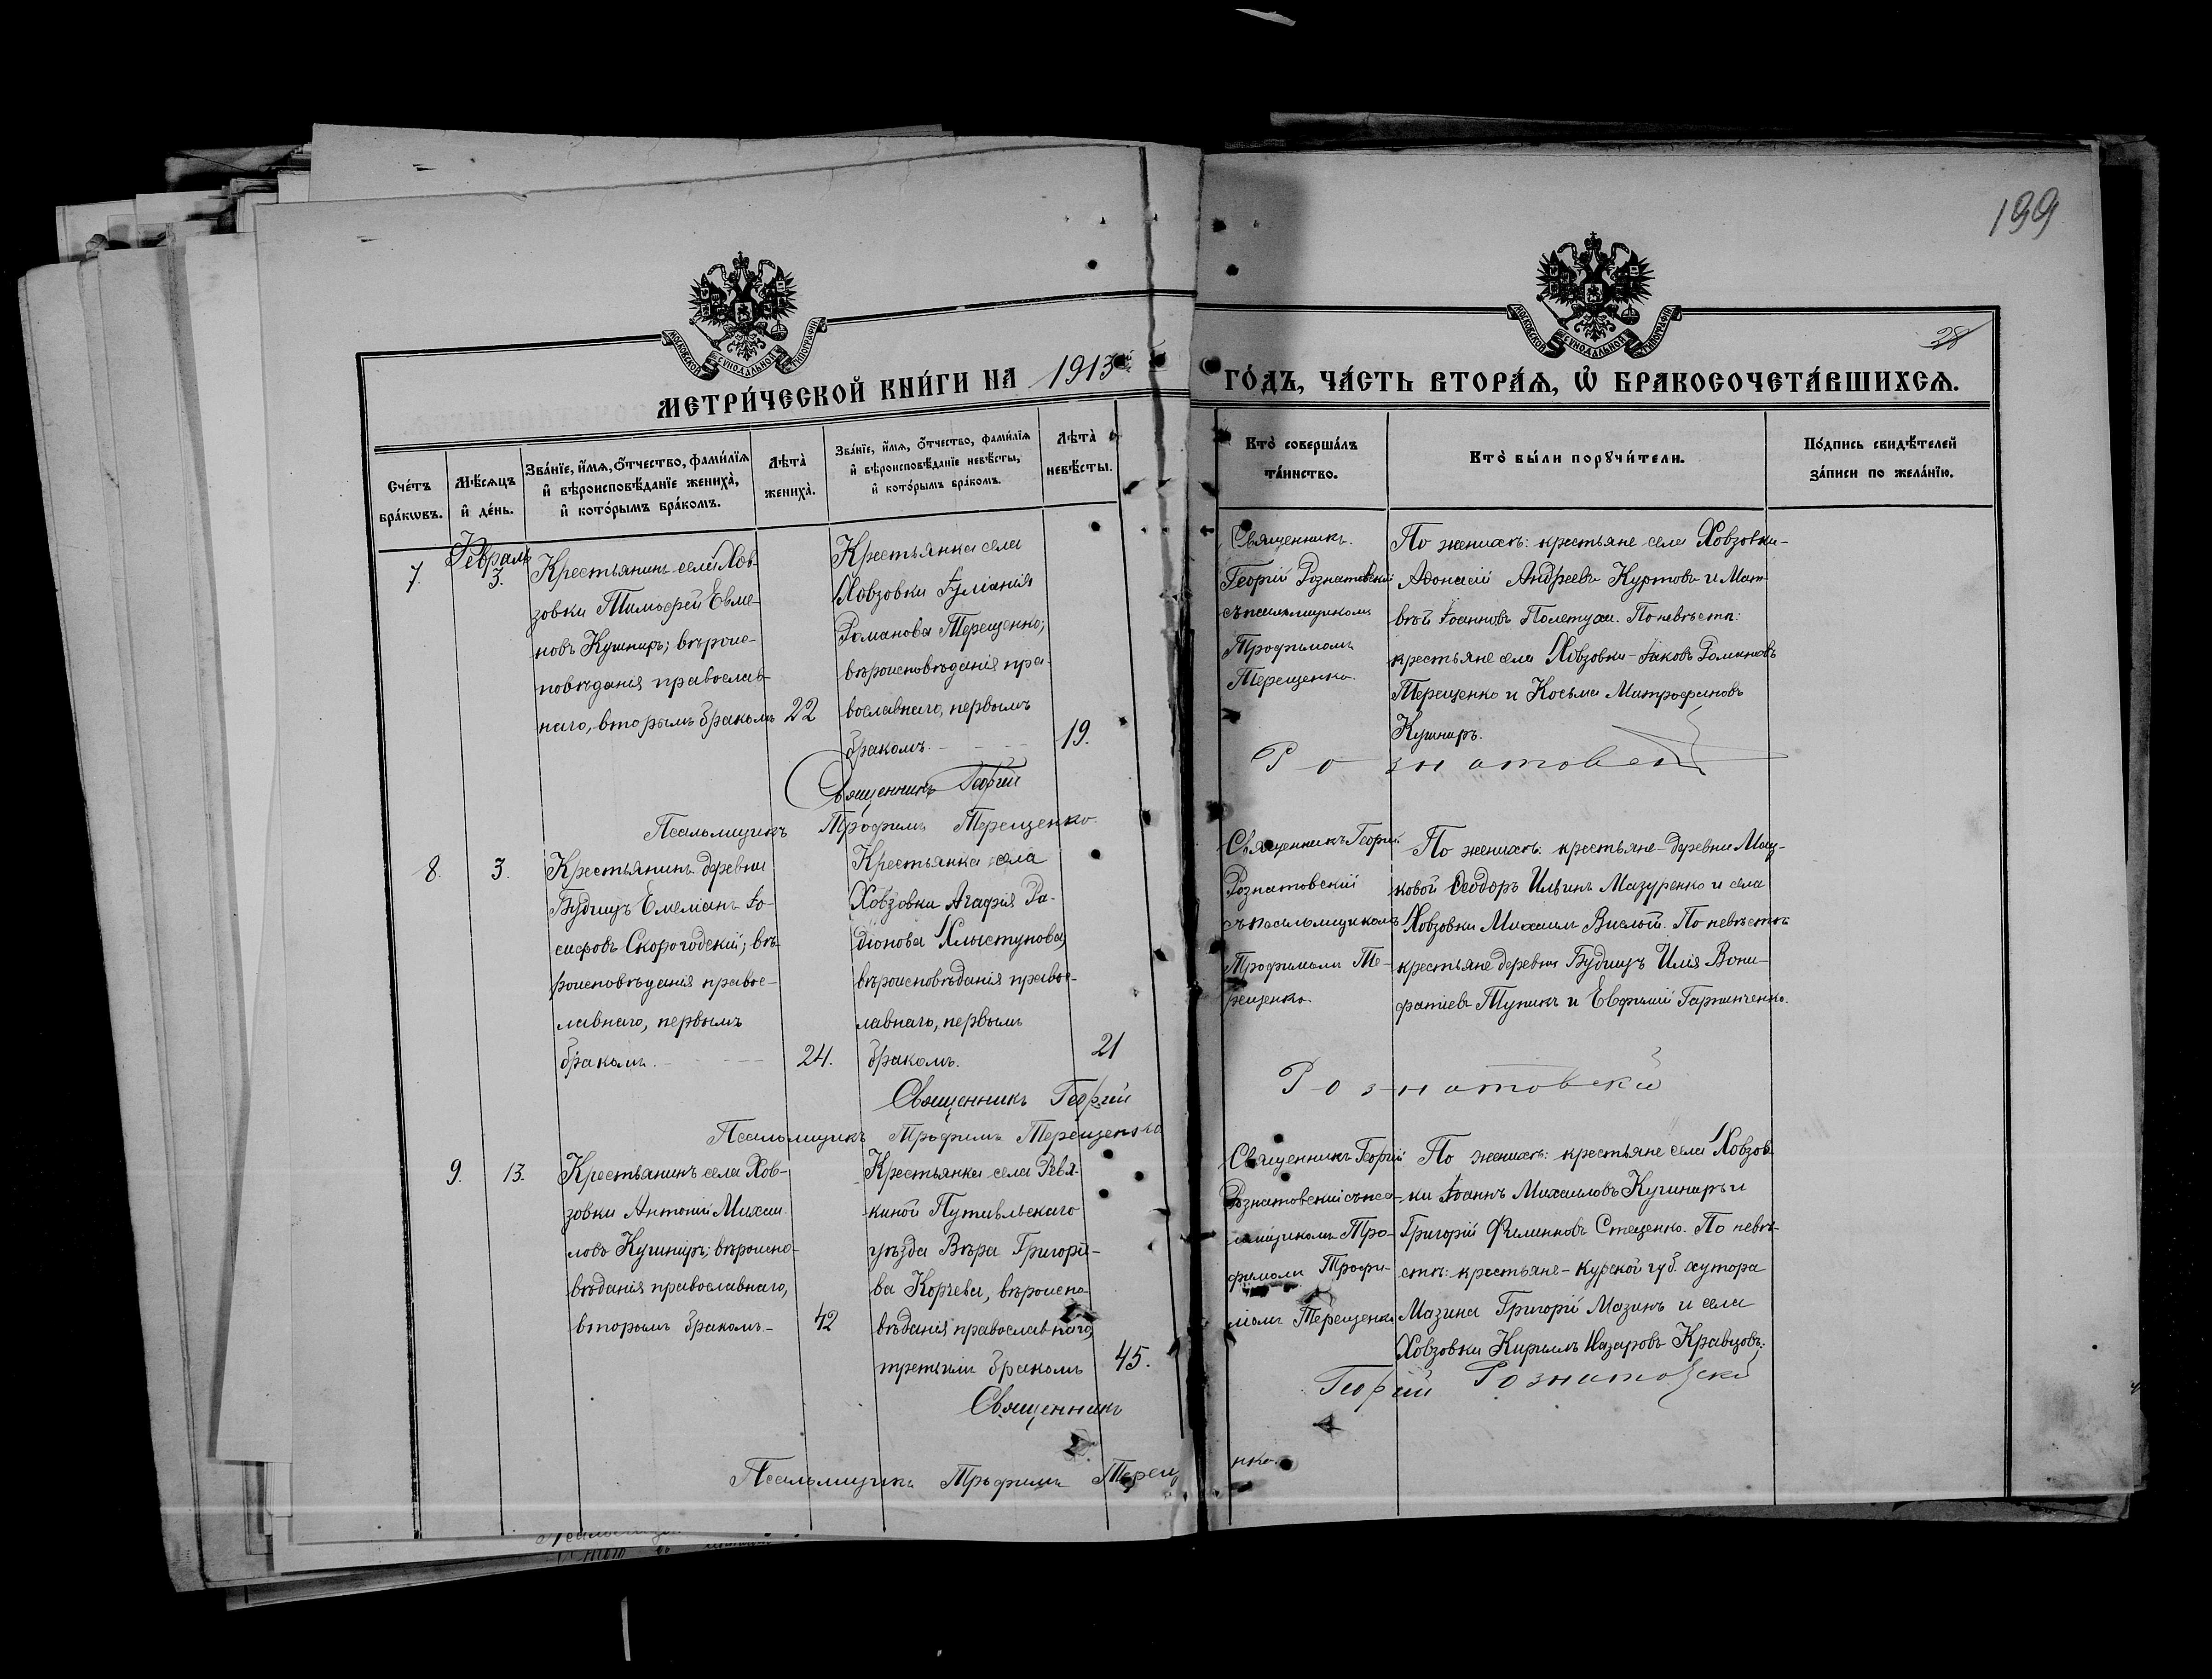 199
28
МОСКОВСКОЙ СУНОДАЛЬНОЙ ТИПОГРАФІИ
МОСКОВСКОЙ СУНОДАЛЬНОЙ ТИПОГРАФІИ
МЕТРИ́ЧЕСКОЙ КНИ́ГИ НА 1913й
ГО́ДЪ, ЧА́СТЬ ВТОРА́Я, Ѽ БРАКОСОЧЕТА́ВШИХСЯ.
Сче́тъ
бра́кѡвъ.
Мѣ́сяцъ
и҆ де́нь.
Зва́нїе, и҆́мя, ѻ҆́тчество, фами́лїя
и҆ вѣроисповѣ́данїе жениха̀,
и҆ кото́рымъ бра́комъ.
Лѣта̀
жениха̀.
Зва́нїе, и҆́мя, ѻ҆́тчество, фами́лїя
и҆ вѣроисповѣ́данїе невѣ́сты,
и҆ кото́рымъ бра́комъ.
Лѣта̀
невѣ́сты.
Кто̀ соверша́лъ
та́инство.
Кто̀ бы́ли порꙋчи́тели.
По́дпись свидѣ́телей
за́писи по жела́нїю.
7.
Февраль
3.
Крестьянинъ села Хов-
зовки Тимоѳей Евме-
новъ Кушниръ; вѣроис-
повѣданія православ-
наго, вторымъ бракомъ
22
Крестьянка села
Ховзовки Іуліанія
Романова Терещенко;
вѣроисповѣданія пра-
вославнаго, первымъ
бракомъ.
19.
Священникъ
Георгій Рознатовскій
съ псаломщикомъ
Трофимомъ
Терещенко.
По женихѣ: крестьяне села Ховзовки-
Аѳонасій Андреевъ Куртовъ и Мат-
вѣй Іоанновъ Полетуха. По невѣстѣ:
крестьяне села Ховзовки-Іаковъ Романовъ
Терещенко и Косьма Митрофановъ
Кушниръ.
Священникъ Георгій
Рознатовскій
Псаломщикъ Трофимъ Терещенко.
8.
3.
Крестьянинъ деревни
Будищъ Емеліанъ Іо-
сифовъ Скорогодскій; вѣ-
роисповѣданія правос-
лавнаго, первымъ
бракомъ.
24.
Крестьянка села
Ховзовки Агафія Ра-
діонова Хлыстунова,
вѣроисповѣданія правос-
лавнаго, первымъ
бракомъ.
21
Священникъ Георгій
Рознатовскій
съ псаломщикомъ
Трофимомъ Те-
рещенко.
По женихѣ: крестьяне-деревни Мац-
ковой Ѳеодоръ Ильинъ Мазуренко и села
Ховзовки Михаилъ Вислый. По невѣстѣ
крестьяне деревни Будищъ Илія Вони-
фатіевъ Тупикъ и Евфимій
Священникъ Георгій
Рознатовскій
Псаломщикъ Трофимъ Терещенко
9.
13.
Крестьянинъ села Хов-
зовки Антоній Михаи-
ловъ Кушниръ; вѣроиспо-
вѣданія православнаго,
вторымъ бракомъ-
42
Крестьянка села Ревя-
киной Путивльскаго
уѣзда Вѣра Григорie-
ва Корчева, вѣроиспо-
вѣданія православнаго,
третьимъ бракомъ
45.
Священникъ Георгій
Рознатовскій съ пса-
ломщикомъ Тро-
фимомъ Трофи-
момъ Терещенко
По женихѣ: крестьяне села Ховзов-
ки Іоаннъ Михаиловъ Кушниръ и
Григорій Филиповъ Стеценко. По невѣ-
стѣ: крестьяне-Курской губ. хутора
Мазина Григорій Мазинъ и села
Ховзовки Кириллъ Назаровъ Кравцовъ:
Священникъ
Георгій Рознатовскій
Псаломщикъ Трофимъ Терещ
нко.